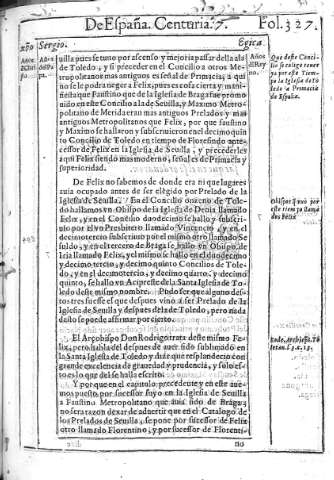 De España. Centuria. 7. Fol. 327.
Sergio. Egica.
uilla pues se tuuo por ascenso y mejoria passar della a la
de Toledo, y si preceder en el Concilio a otros Me-
tropolitanos mas antiguos es señal de Primacia, a qui
no se le podra negar a Felix, pues es cosa cierta y mani-
fiesta que Faustino que de la Iglesia de Braga fue promo
uido en este Concilio a la de Seuilla, y Maximo Metro-
politano de Merida eran mas antiguos Prelados y mas
antiguos Metropolitanos que Felix, por que faustino
y Maximo se hallaron y subscriuieron en el decimo quin
to Concilio de Toledo en tiempo de Floresindo ante-
cessor de Felix en la Iglesia de Seuilla, y precederles
aqui Felix siendo mas moderno, señal es de Primacia y
superioridad.
De Felix no sabemos de donde era ni que lugares
auia ocupado antes de ser elegido por Prelado de la
Iglesia de Seuilla. En el Concilio onzeno de Tole-
do hallamos vn Obispo de la Iglesia de Denia llamado
Felix, y en el Concilio duodecimo se hallo y subscri-
uio por el vn Presbitero llamado Vincencio, y en el
decimotercio subscriuio por el mismo otro llamado Se
suldo, y en el tercero de Braga se hallo vn Obispo de
Iria llamado Felix, y el mismo se hallo en el duodecimo
y decimo tercio, y decimo quinto Concilios de Tole-
do, y en el decimotercio, y decimo quarto, y decimo
quinto, se hallo vn Acipreste de la Santa Iglesia de To
ledo deste mismo nombre. Pudo ser que alguno des-
tos tres fuesse el que despues vino a ser Prelado de la
Iglesia de Seuilla y despues de la de Toledo, pero nada
desto se puede afirmar por cierto.
El Arçobispo Don Rodrigo trata deste mismo Fe-
lix, pero habla del despues de auer sido sublimado en
la Santa Iglesia de Toledo y dize que resplandecio con
grande excelencia de grauedad y prudencia, y solo es-
to es lo que del se halla escrito.
Y por que en el capitulo precedente y en este aue-
mos puesto por sucessor suyo en la Iglesia de Seuilla
a Faustino Metropolitano que auia sido de Braga;
no sera razon dexar de aduertir que en el Catalogo de
los Prelados de Seuilla, se pone por sucessor de Felix
otro llamado Florentino, y por sucessor de Florenti-
no
Que deste Conci-
lio se colige tener
ya por este Tiem-
po la Iglesia de To
ledo la Primacia
de España.
Obispos que vuo por
este tiempo llama
dos Felix